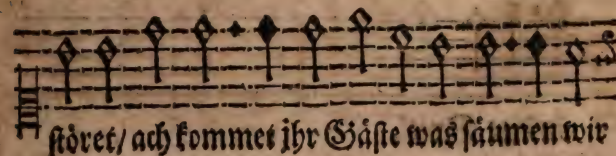 ſtöret/ ach kommet jhr Gäſte was ſäumen wir